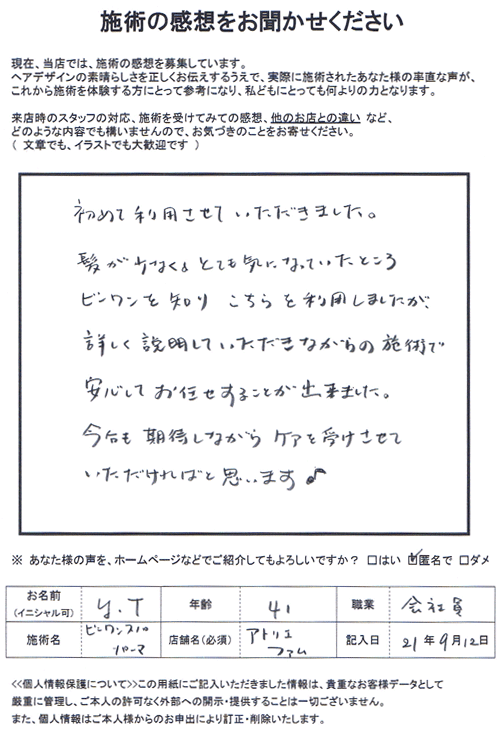 施術の感想をお聞かせください
現在、当店では、施術の感想を募集しています。
ヘアデザインの素晴らしさを正しくお伝えするうえで、実際に施術されたあなた様の率直な声が、
これから施術を体験する方にとって参考になり、私どもにとっても何よりの力となります。
来店時のスタッフの対応、施術を受けてみての感想、他のお店との違い など、
どのような内容でも構いませんので、お気づきのことをお寄せください。
( 文章でも、イラストでも大歓迎です )
初めて利用させていただきました。
髪が少なく、とても気になっていたところ
ビーワンを知り こちらを利用しましたが、
詳しく説明していただきながらの施術で
安心してお任せすることが出来ました。
今后も期待しながらケアを受けさせて
いただければと思います♪
※ あなた様の声を、ホームページなどでご紹介してもよろしいですか? □はい ☑匿名で □ダメ
お名前 (イニシャル可) y.T 年齢 41 職業 会社員
施術名 ビーワンスパ パーマ 店舗名(必須) アトリエ ファム 記入日 21年9月12日
<<個人情報保護について>>この用紙にご記入いただきました情報は、貴重なお客様データとして
厳重に管理し、ご本人の許可なく外部への開示・提供することは一切ございません。
また、個人情報はご本人様からのお申出により訂正・削除いたします。